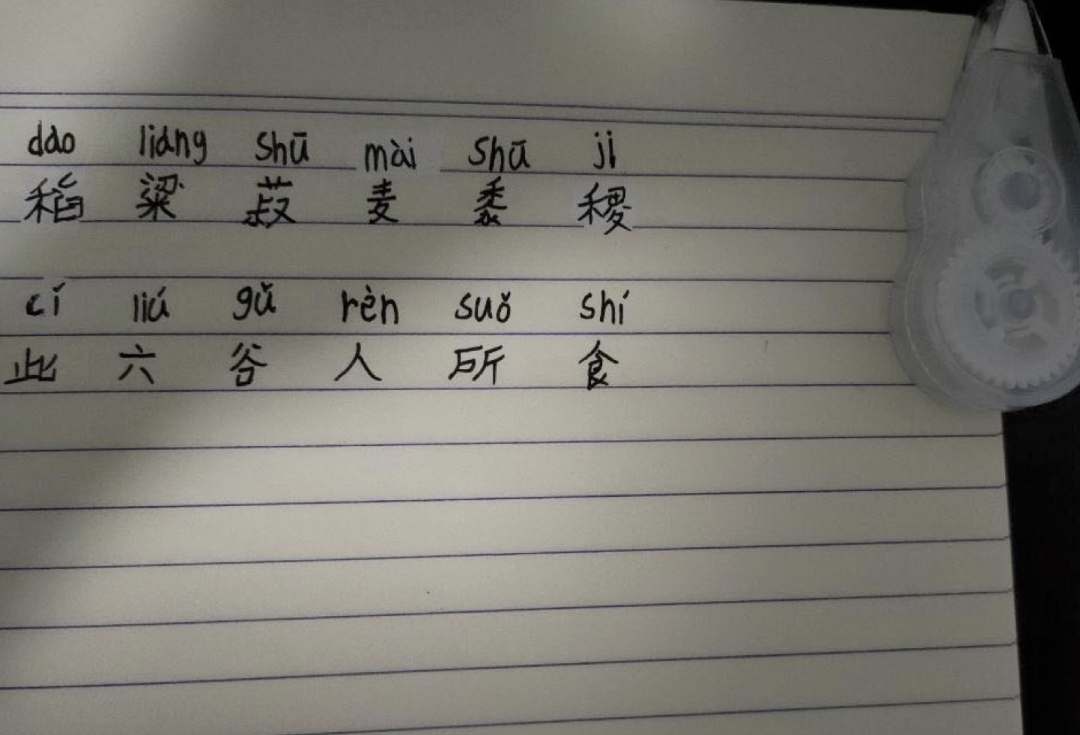 dào liáng Shū mài Shǔ jì
稻 粱 菽 麦 黍 稷
cǐ liú gǔ rèn suǒ shí
此 六 谷 人 所 食